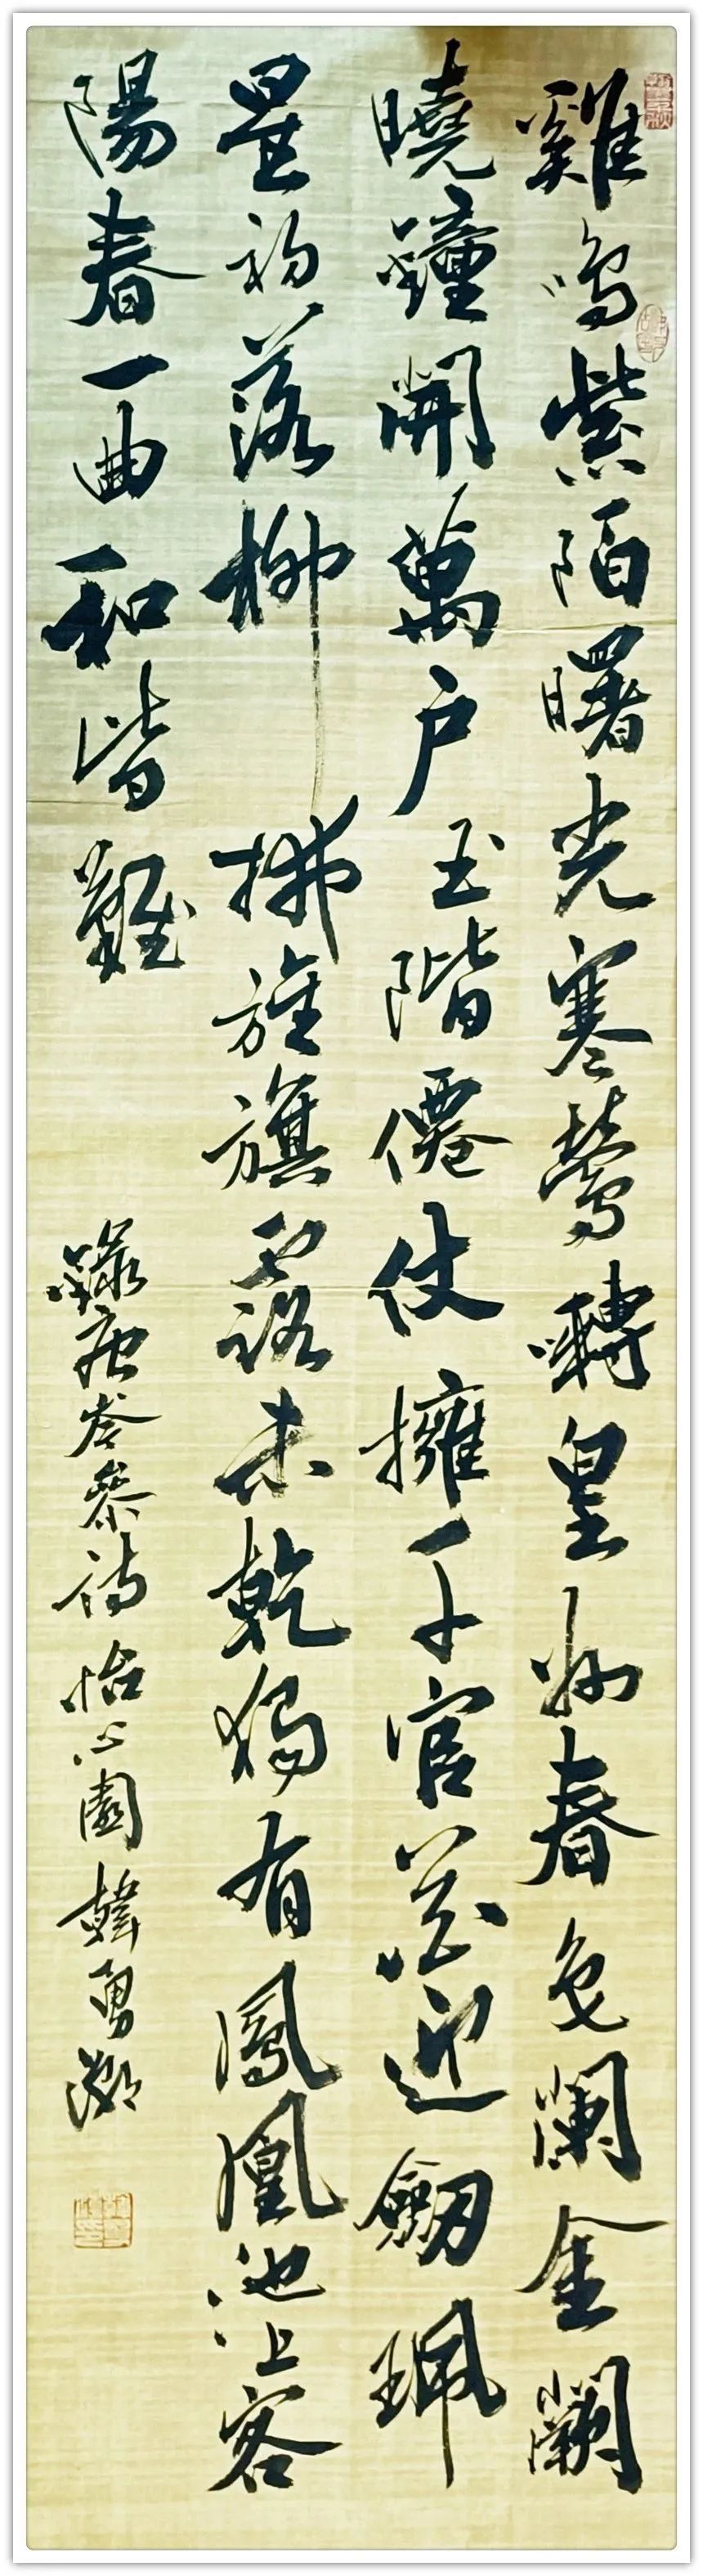 雞鳴紫陌曙光寒鶯囀皇州春色闌金闕
曉鐘開萬户玉階僊仗擁千官花迎劒珮
星初落柳拂旌旗露未乾獨有鳳凰池上客
陽春一曲和皆難
錄唐岑參詩怡心園韓勇